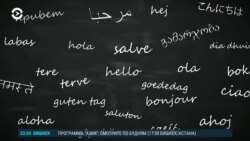 привет مرحبا hej こんにちは
labas hola salve გამარჯობა dia dhuit
नमस्ते tere terve hello ola bok
guten tag goededag bonjour ciao
aloha saluton
23:34 БИШКЕК ПРОГРАММА "АЗИЯ": СМОТРИТЕ ПО БУДНЯМ (17:00 БИШКЕК/АСТАНА)